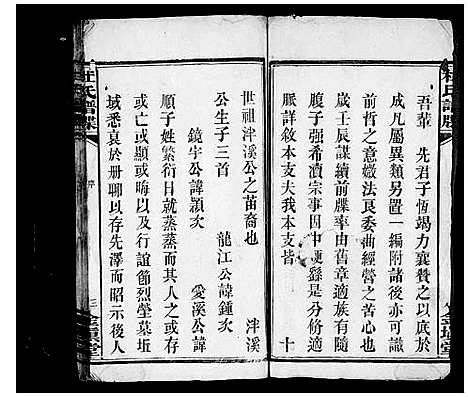 吾輩 先君子恆竭力襄贊之以底於
成凡屬異類另置一編附諸後亦可識
前哲之意嬓法良委曲經營之苦心也
歲壬辰謀續前牒率由舊章適族有
腹子强希瀆宗事因中 繇是分脩適
脈詳敘本支夫我本支皆 十
世祖泮溪公之苗裔也 泮溪
公生子三首 龍江公諱鍾次
鏡宇公諱潁次 愛溪公諱
順子姓繁衍日就蒸蒸而其人之或存
或亡或顯或晦以及行誼節烈塋墓坵
域悉哀於册聊以存先澤而昭示後人
杜氏譜牒
序
三